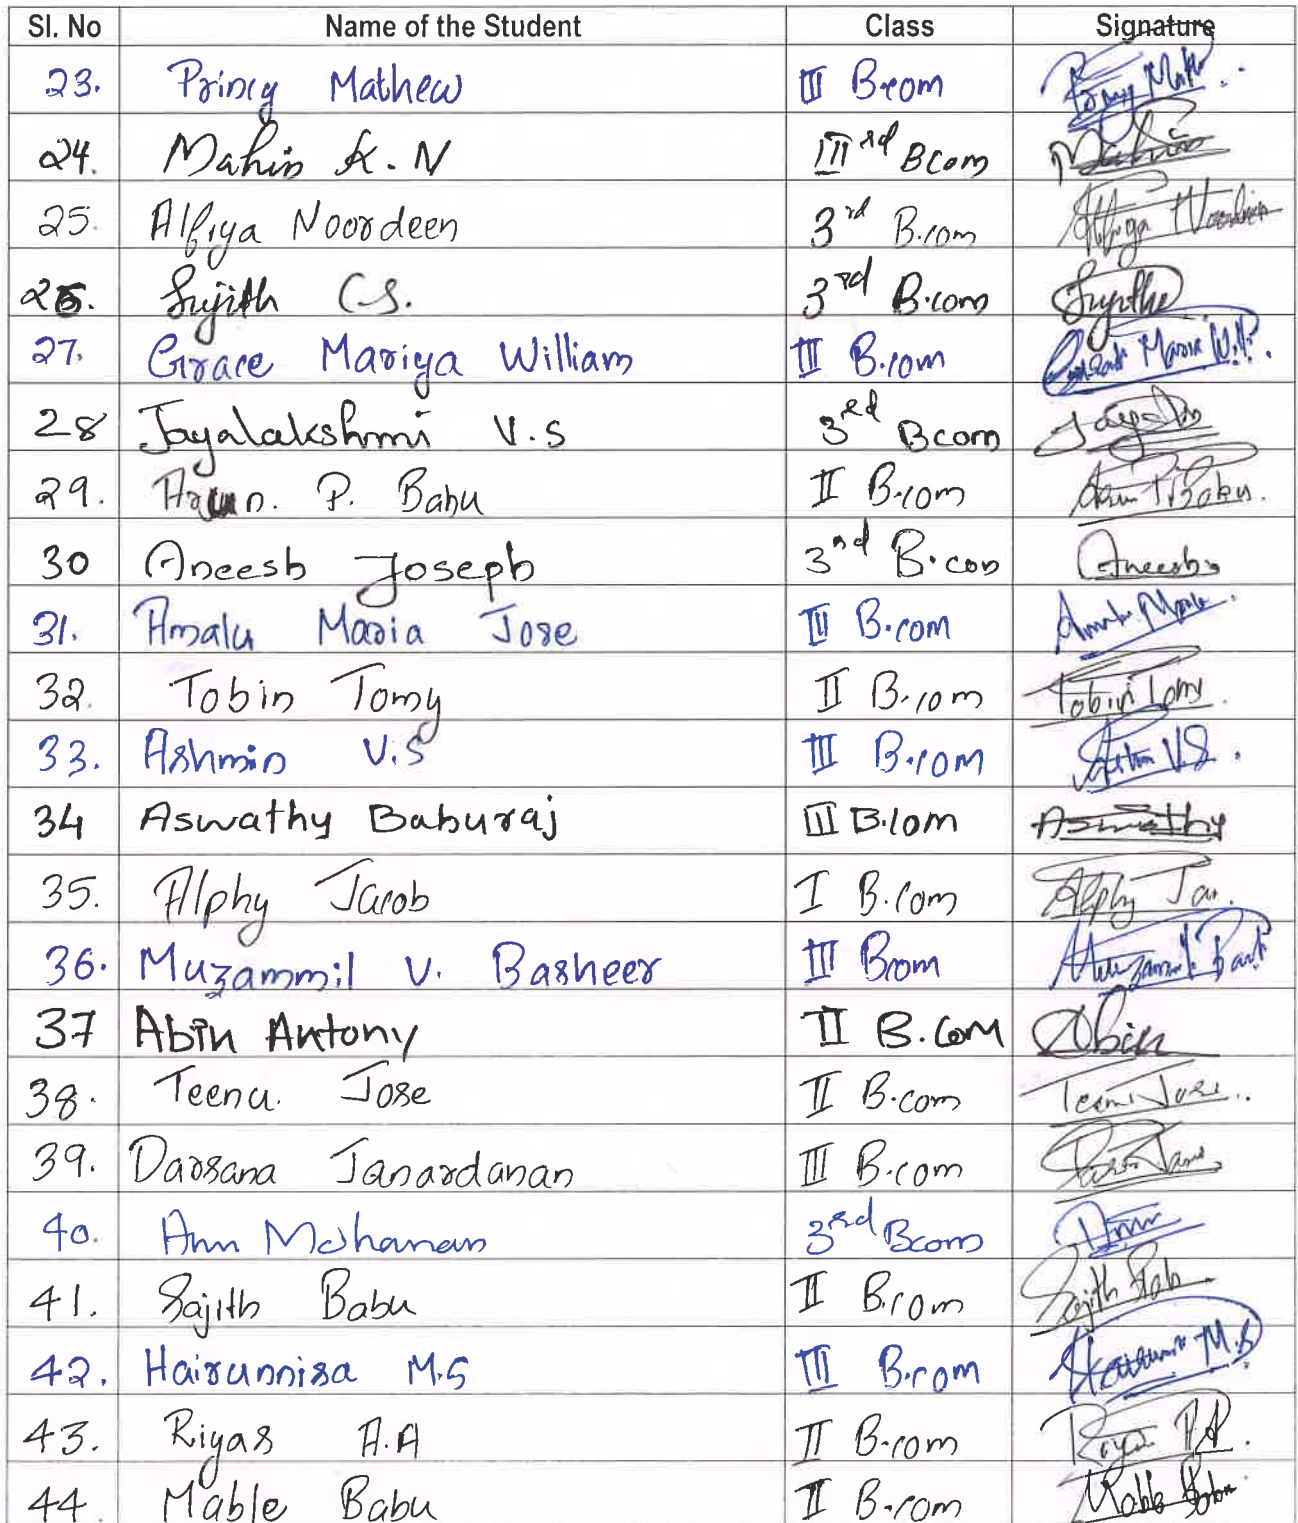 Sl. No Name of the Student Class Signature
23. Princy Mathew III B.com
24. Mahin K. N III rd Bcom Mahin
25. Alfiya Noordeen 3rd B.com Alfiya Noordeen
26. Sujith C.S. 3rd B.com Sujith
27. Grace Mariya William III B.com
28 Jayalakshmi V.S 3rd Bcom
29. Arun. P. Babu II B.com Arun P. Babu.
30 Aneesh Joseph 3rd B.com Aneesh
31. Amalu Maria Jose III B.com
32. Tobin Tomy II B.com Tobin Tomy
33. Ashmin V.S III B.com
34 Aswathy Baburaj III B.com Aswathy
35. Alphy Jacob I B.com Alphy Jac.
36. Muzammil V. Basheer III Bcom
37 Abin Antony II B.com Abin
38. Teenu. Jose II B.com Teenu Jose..
39. Darsana Janardanan III B.com
40. Ann Mohanan 3rd Bcom Ann
41. Sajith Babu II B.com Sajith Bab
42. Hairunnisa M.S III B.com
43. Riyas A.A II B.com Riyas A.A.
44 Mable Babu II B.com Mable